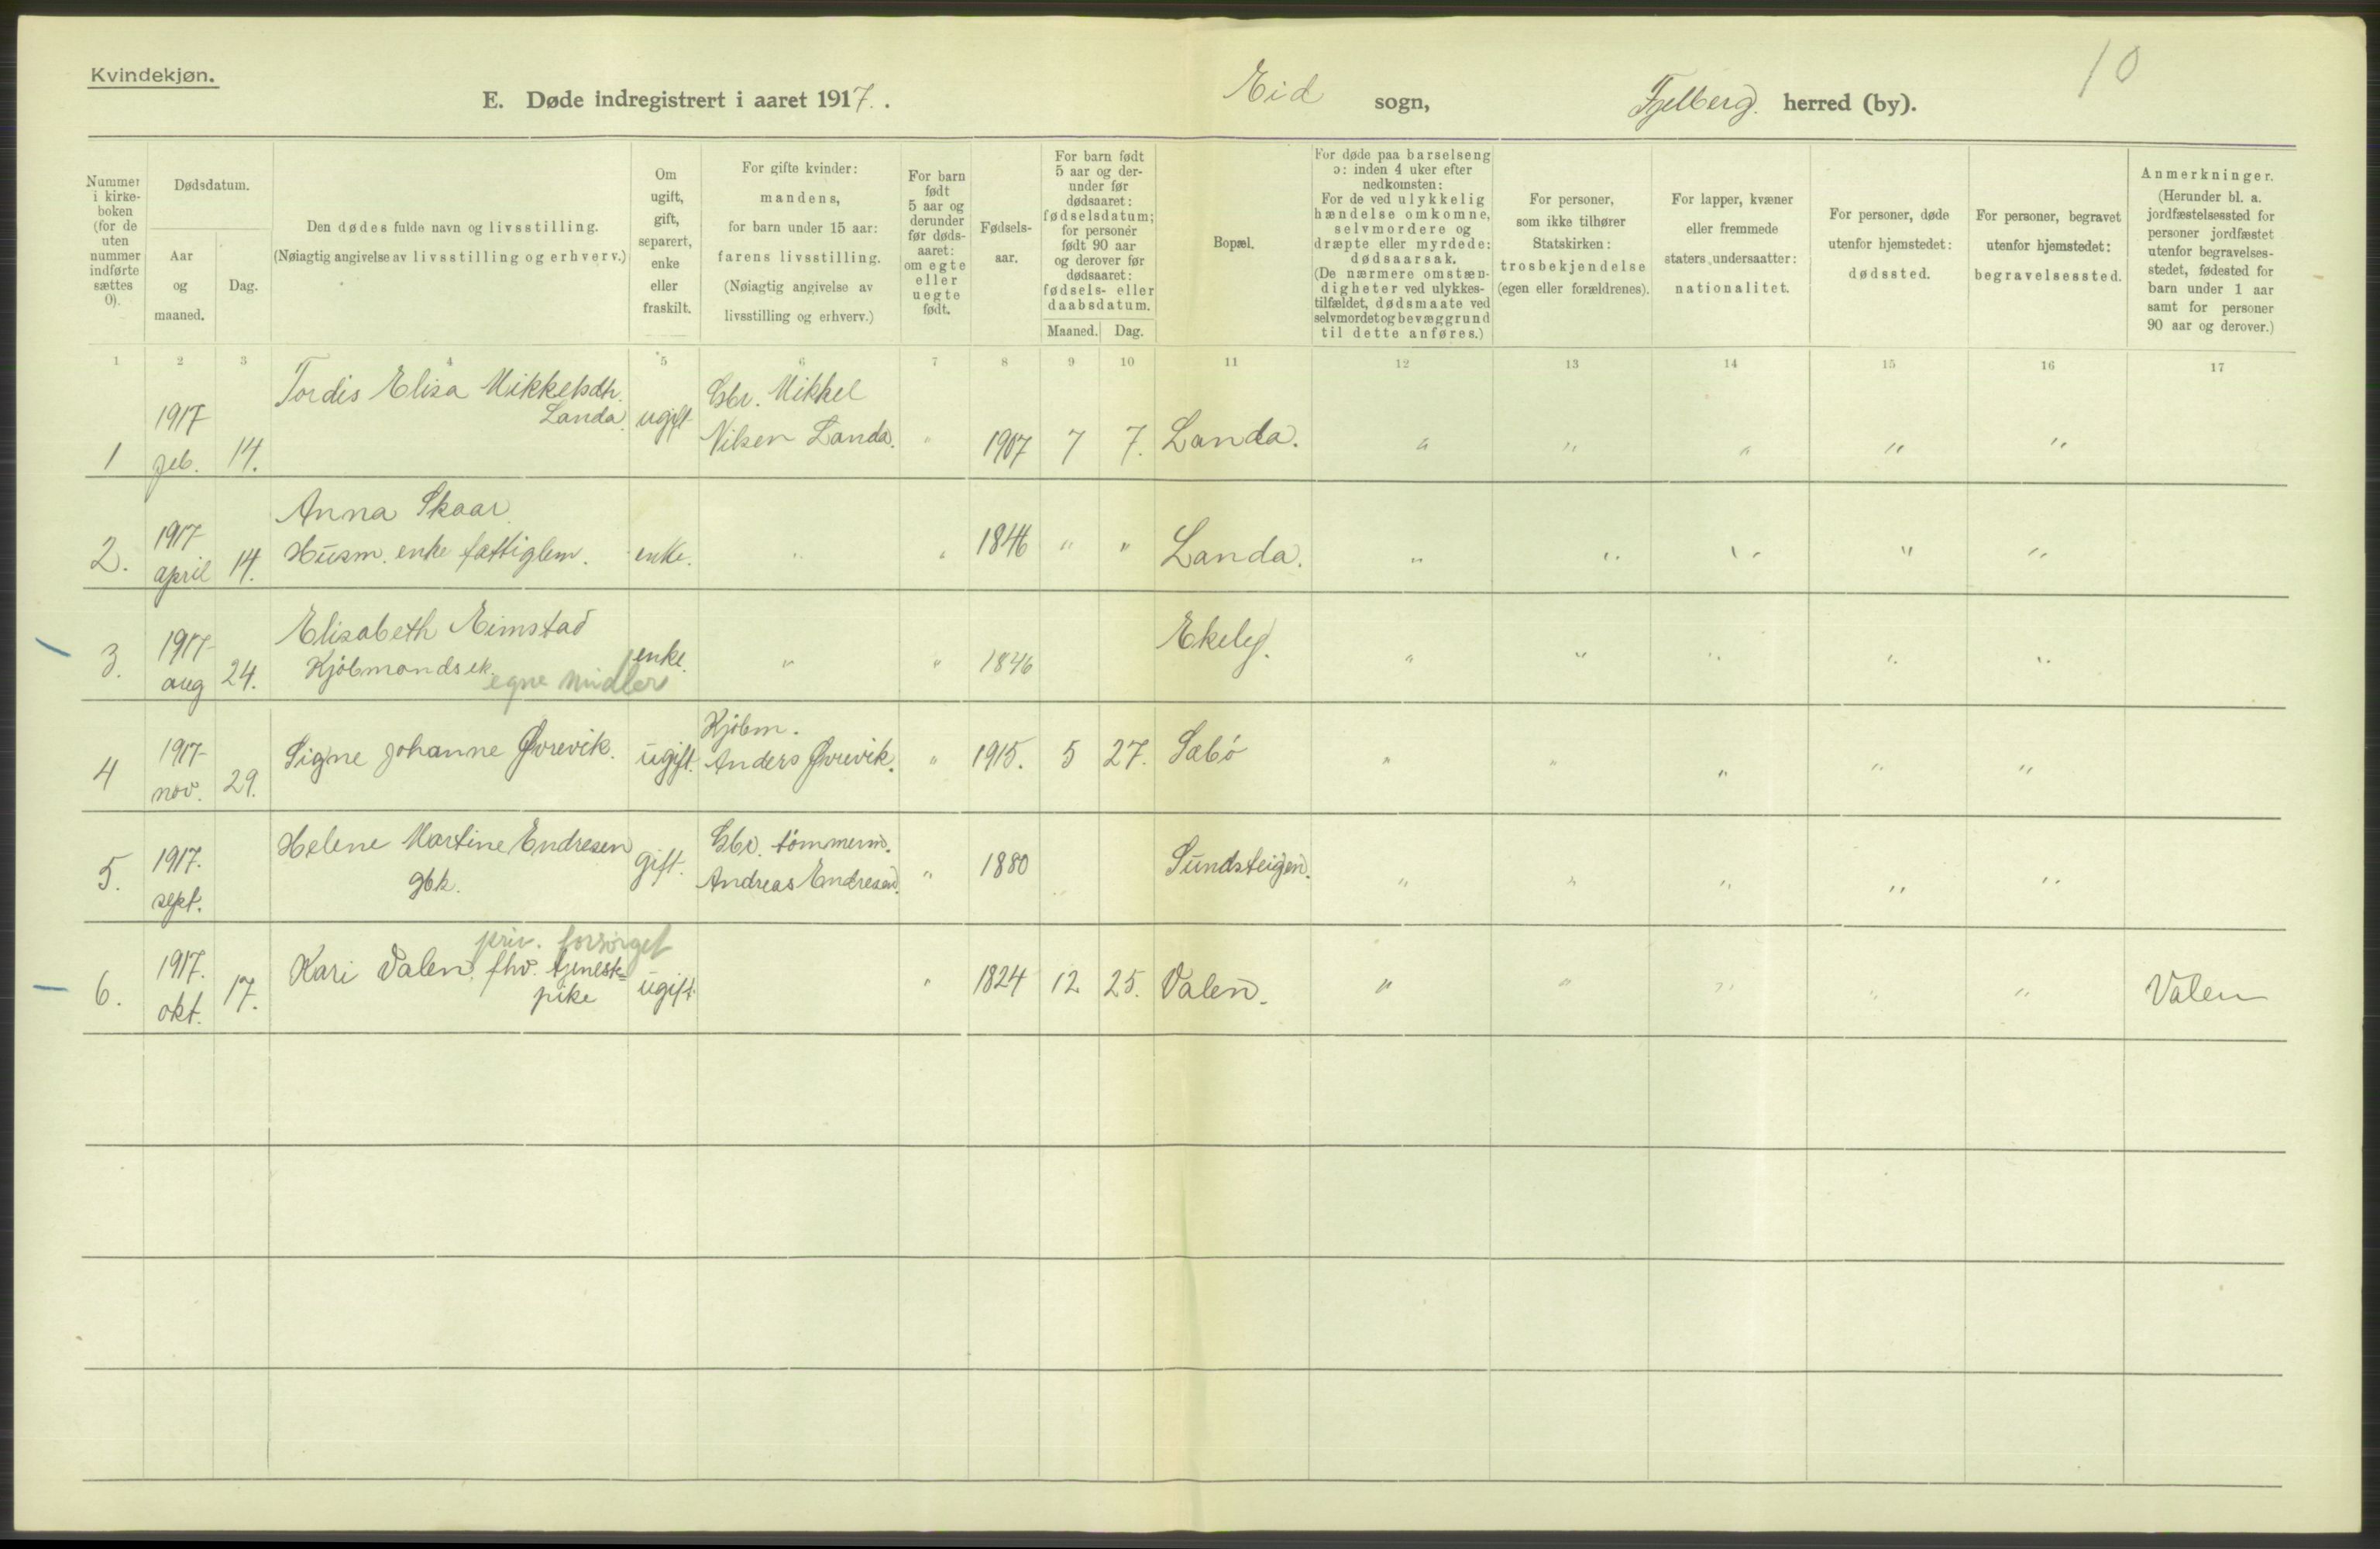 Kvindekjøn.
E. Døde indregistrert i aaret 1917. .
Eid sogn,
Fjelberg. herred (by).
10
Nummer
i kirke-
boken
(for de
uten
nummer
indførte
sættes
0).
Dødsdatum.
Aar
og
maaned.
Dag.
Den dødes fulde navn og livsstilling.
(Nøiagtig angivelse av livsstilling og erhverv.)
Om
ugift,
gift,
separert,
enke
eller
fraskilt.
For gifte kvinder:
mandens,
for barn under 15 aar:
farens livsstilling.
(Nøiagtig angivelse av
livsstilling og erhverv.)
For barn
født
5 aar og
derunder
før døds-
aaret:
om egte
eller
uegte
født.
Fødsels-
aar.
For barn født
5 aar og der-
under før
dødsaaret:
fødselsdatum;
for personer
født 90 aar
og derover før
dødsaaret:
fødsels- eller
daabsdatum.
Maaned. Dag.
Bopæl.
For døde paa barselseng
ɔ: inden 4 uker efter
nedkomsten:
For de ved ulykkelig
hændelse omkomne,
selvmordere og
dræpte eller myrdede:
dødsaarsak.
(De nærmere omstæn-
digheter ved ulykkes-
tilfældet, dødsmaate ved
selvmordet og bevæggrund
til dette anføres.)
For personer,
som ikke tilhører
Statskirken:
trosbekjendelse
(egen eller forældrenes).
For lapper, kvæner
eller fremmede
staters undersaatter:
nationalitet.
For personer, døde
utenfor hjemstedet:
dødssted.
For personer, begravet
utenfor hjemstedet:
begravelsessted.
Anmerkninger.
(Herunder bl. a.
jordfæstelsessted for
personer jordfæstet
utenfor begravelses-
stedet, fødested for
barn under 1 aar
samt for personer
90 aar og derover.)
1 2 3 4 5 6 7 8 9 10 11 12 13 14 15 16 17
Tordis Eliza Mikkelsdtr.
Landa.
1 1917 feb. 14.
ugift
Gbr. Mikkel
Nilsen Landa.
" 1907 7 7. Landa. " " " " "
Anna Skaar
2. 1917 april 14. Husm. enke fattiglem. enke. " " 1846 " " Landa. " " " " "
Elisabeth Eimstad
3. 1917 aug 24. Kjöbmands ek. enke. " " 1846 Ekeleg. " " " " "
egne midler
Kjöbm.
4 1917 nov. 29. Signe Johanne Øvrevik. ugift. Anders Øvrevik. " 1915. 5 27. Sæbö " " " " "
Helene Martine Endresen
gbk.
5. 1917. sept.
gift.
Gbr. tömmerm.
Andreas Endresen.
" 1880 Sundsteigen. " " " " "
priv. forsörget
6. 1917. okt. 17. Kari Valen, fhv. tjenest-
pike
ugift. " 1824 12 25. Valen. " " " " " Valen